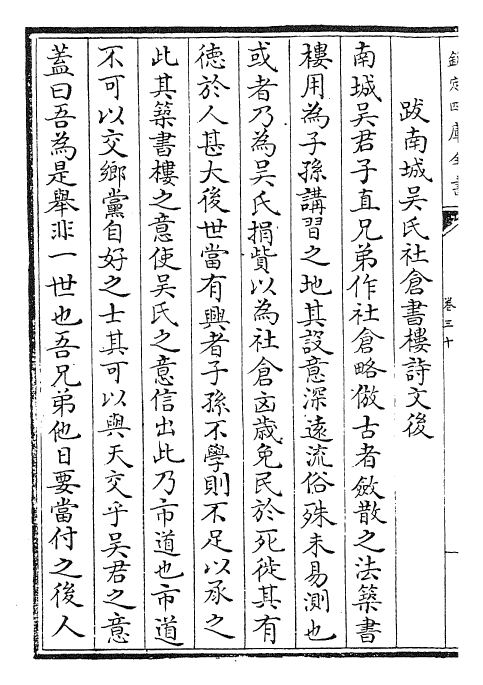 欽定四庫全書
卷三十
跋南城吳氏社倉書樓詩文後
南城吳君子直兄弟作社倉略倣古者斂散之法築書
樓用為子孫講習之地其設意深遠流俗殊未易測也
或者乃為吳氏捐貲以為社倉凶歲免民於死徙其有
徳於人甚大後世當有興者子孫不學則不足以承之
此其築書樓之意使吳氏之意信出此乃市道也市道
不可以交鄉黨自好之士其可以與天交乎吳君之意
蓋曰吾為是舉非一世也吾兄弟他日要當付之後人